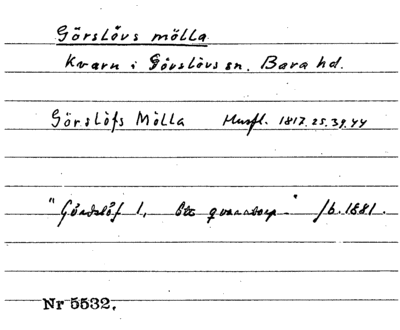 Görslövs mölla
Kvarn i Görslövs sn. Bara hd.
Görslöfs Mölla Husfl. 1817.25.39.44
"Görslöf 1, Ett qvarntorp." Jb. 1881.
Nr 5532.